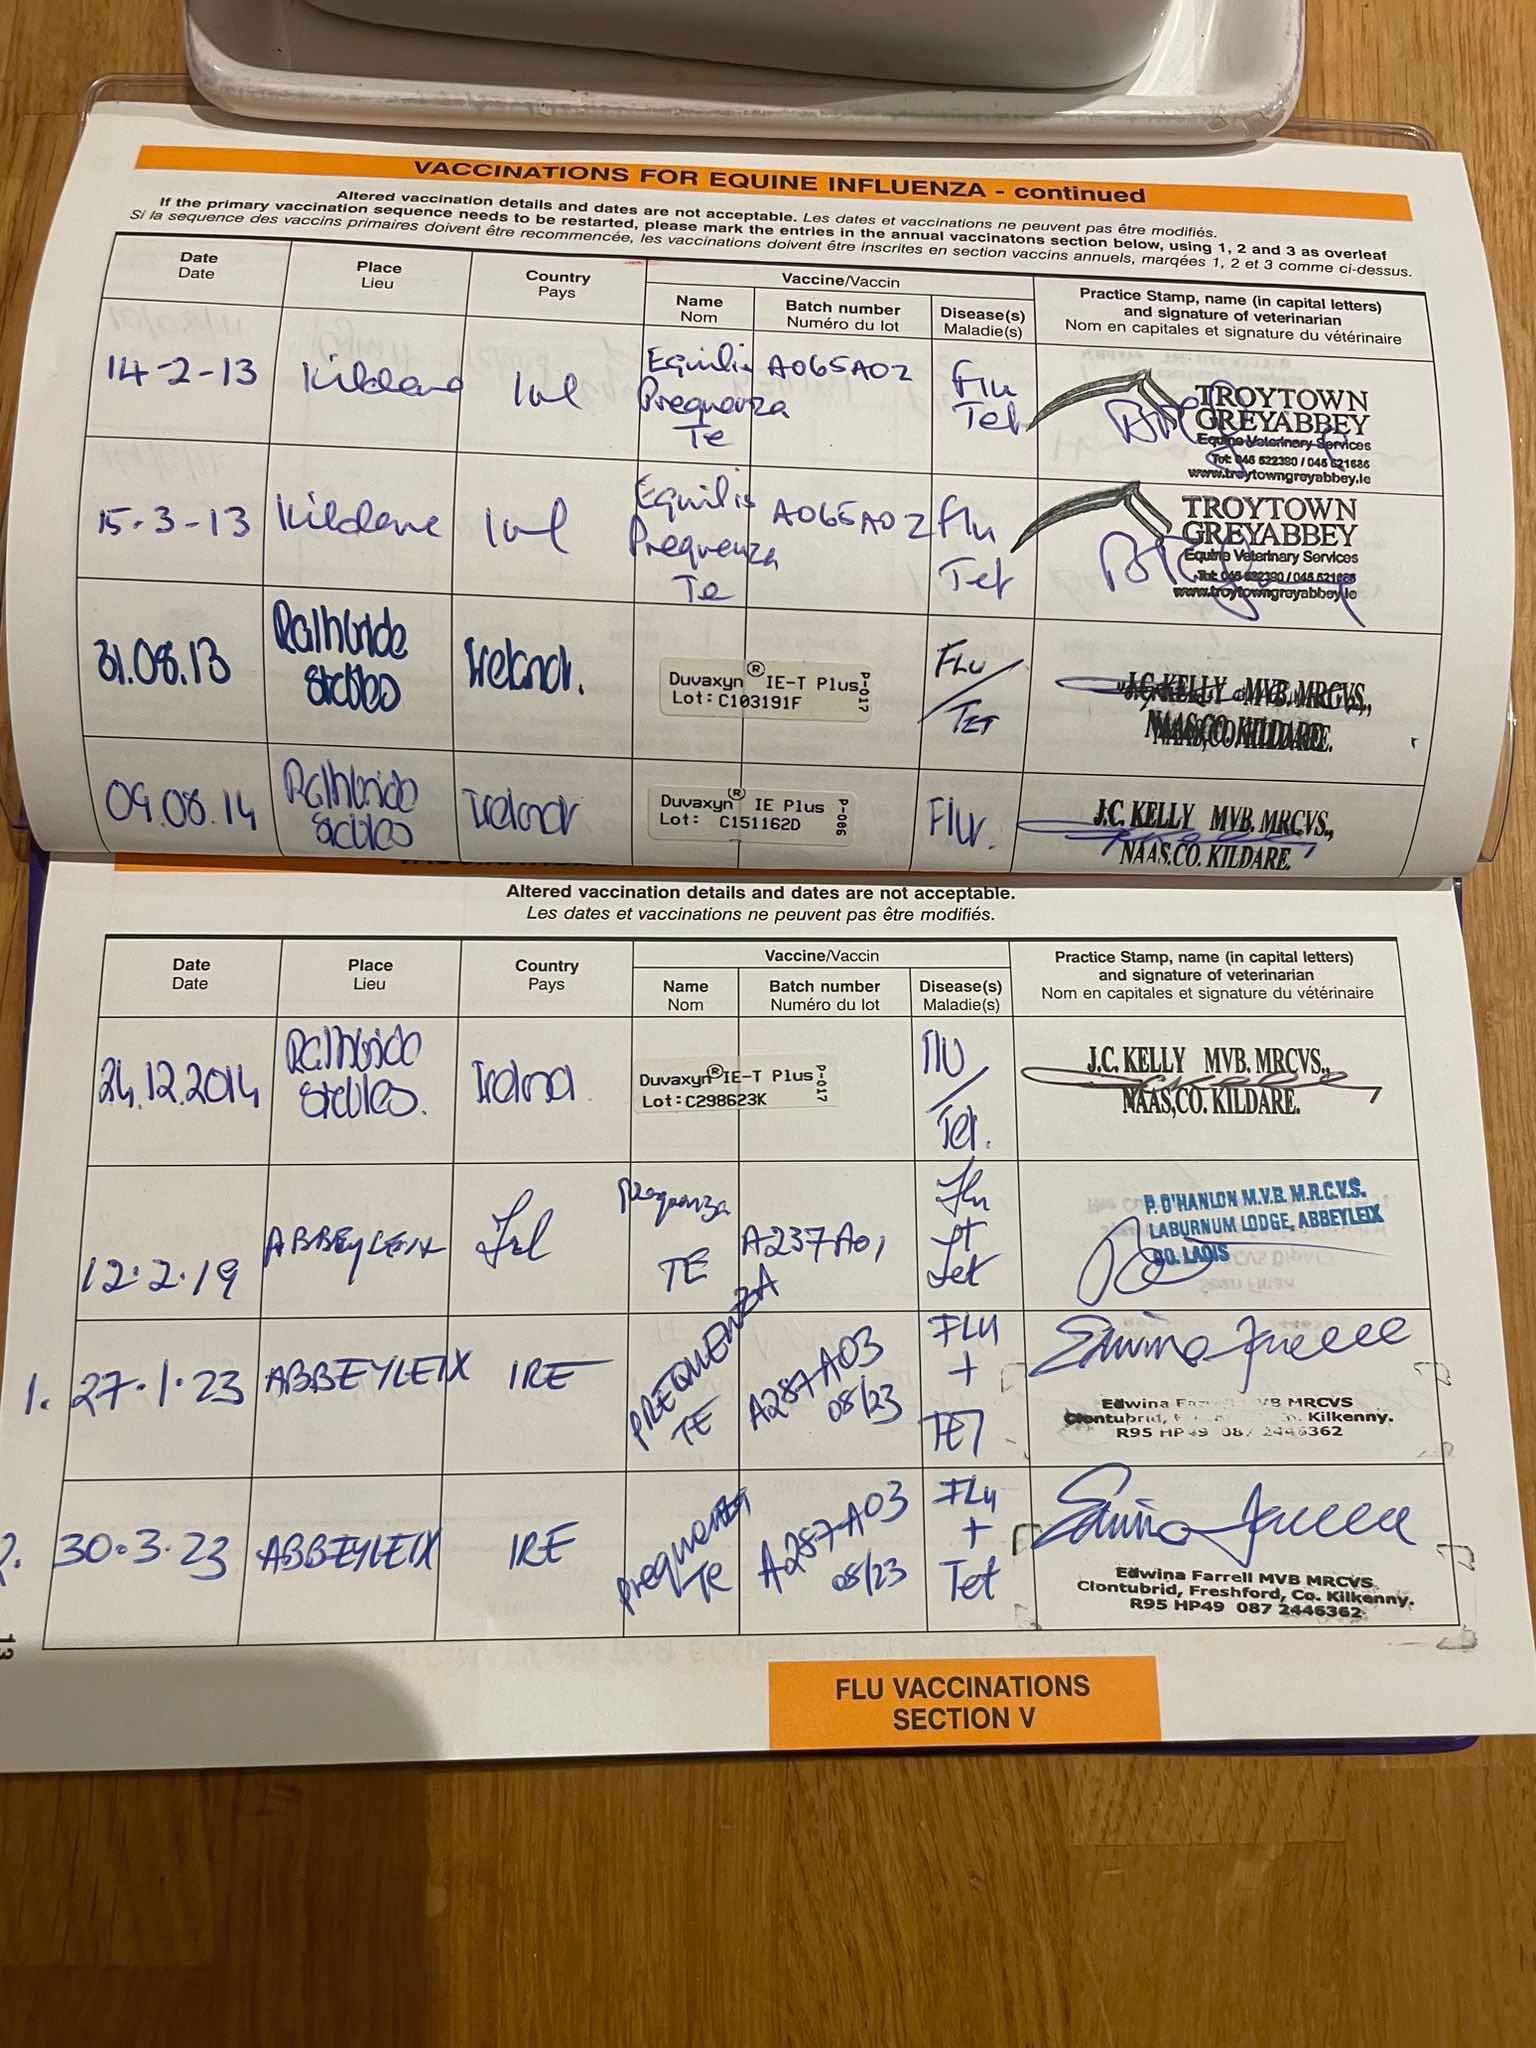 VACCINATIONS FOR EQUINE INFLUENZA - continued
Altered vaccination details and dates are not acceptable. Les dates et vaccinations ne peuvent pas être modifiés.
If the primary vaccination sequence needs to be restarted, please mark the entries in the annual vaccinatons section below, using 1, 2 and 3 as overleaf
Si la sequence des vaccins primaires doivent être recommencée, les vaccinations doivent être inscrites en section vaccins annuels, marqées 1, 2 et 3 comme ci-dessus.
Date
Date
Place
Lieu
Country
Pays
Vaccine/Vaccin
Name
Nom
Batch number
Numéro du lot
Disease(s)
Maladie(s)
Practice Stamp, name (in capital letters)
and signature of veterinarian
Nom en capitales et signature du vétérinaire
14-2-13
Kildare
Irel
Equilis
Prequenza
Te
A065A02
Flu
Tet
TROYTOWN
GREYABBEY
Equine Veterinary Services
Tel: 045 522390 / 045 521686
www.troytowngreyabbey.ie
15-3-13
Kildare
Irel
Equilis
Prequenza
Te
A065A02
Flu
Tet
TROYTOWN
GREYABBEY
Equine Veterinary Services
Tel: 045 522390 / 045 521686
www.troytowngreyabbey.ie
31.08.13
Rathbride
Stables
Ireland.
Duvaxyn® IE-T Plus
Lot: C103191F
P-017
FLU
/
TET
J.C. KELLY MVB. MRCVS.,
NAAS,CO. KILDARE.
09.08.14
Rathbride
Stables
Ireland
Duvaxyn® IE Plus
Lot: C151162D
P-086
Flu.
J.C. KELLY MVB. MRCVS.,
NAAS,CO. KILDARE.
Altered vaccination details and dates are not acceptable.
Les dates et vaccinations ne peuvent pas être modifiés.
Date
Date
Place
Lieu
Country
Pays
Vaccine/Vaccin
Name
Nom
Batch number
Numéro du lot
Disease(s)
Maladie(s)
Practice Stamp, name (in capital letters)
and signature of veterinarian
Nom en capitales et signature du vétérinaire
24.12.2014
Rathbride
Stables.
Ireland
Duvaxyn® IE-T Plus
Lot: C298623K
P-017
Flu
/
Tet.
J.C. KELLY MVB. MRCVS.,
NAAS,CO. KILDARE.
12.2.19
ABBEYLEIX
Irl
Prequenza
TE
A237A01
Flu
Tet
P. O'HANLON M.V.B. M.R.C.V.S.
LABURNUM LODGE, ABBEYLEIX
CO. LAOIS
1. 27.1.23
ABBEYLEIX
IRE
PREQUENZA
TE
A287A03
08/23
FLU
+
TET
Edwina Farrell
Edwina Farrell MVB MRCVS
Clontubrid, Freshford, Co. Kilkenny.
R95 HP49 087 2446362
2. 30.3.23
ABBEYLEIX
IRE
prequenza
Te
A287A03
08/23
FLu
+
Tet
Edwina Farrell
Edwina Farrell MVB MRCVS
Clontubrid, Freshford, Co. Kilkenny.
R95 HP49 087 2446362
13
FLU VACCINATIONS
SECTION V